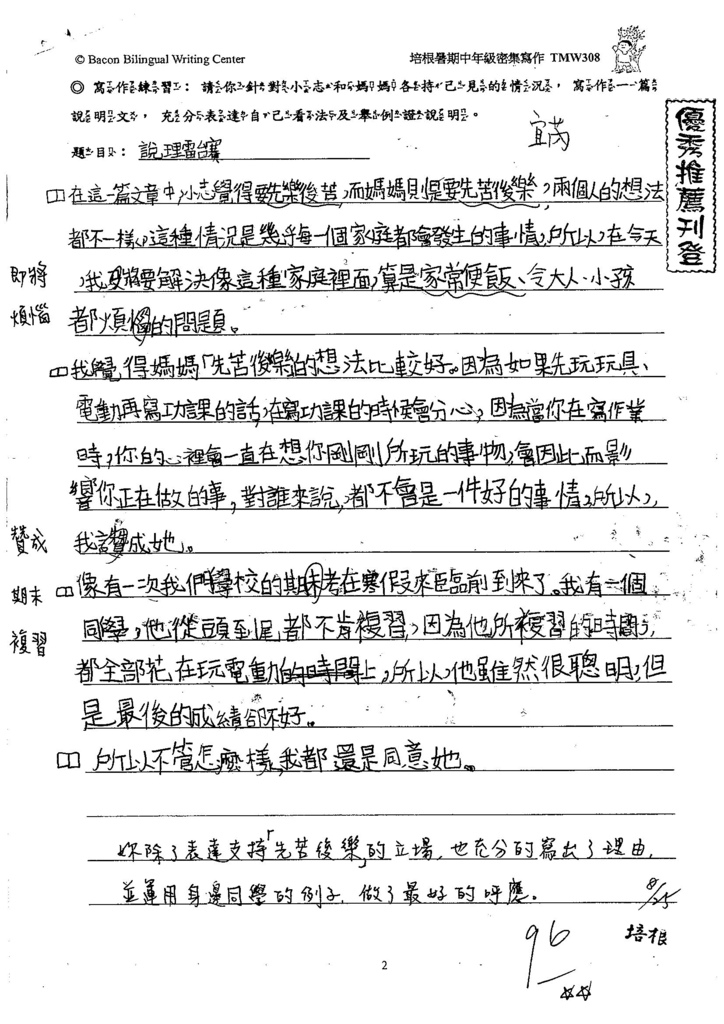 © Bacon Bilingual Writing Center 培根暑期中年級密集寫作 TMW308
◎ 寫作練習：請你針對小志和媽媽各持己見的情況，寫作一篇
說明文，充分表達自己看法及舉例證說明。
宜芮
題目：說理擂台賽
優秀推薦刊登
在這一篇文章中，小志覺得要先樂後苦，而媽媽則是要先苦後樂，兩個人的想法
都不一樣，這種情況是幾乎每一個家庭都會發生的事情，所以，在今天
，我要解決像這種家庭裡面，算是家常便飯、令大人、小孩
即將
煩惱
都煩惱的問題。
我覺得媽媽「先苦後樂」的想法比較好。因為如果先玩玩具、
電動再寫功課的話，在寫功課的時候會分心，因為當你在寫作業
時，你的心裡會一直在想你剛剛所玩的事物，會因此而影
響你正在做的事，對誰來說，都不會是一件好的事情，所以，
贊成
我讚成她。
期末
像有一次我們學校的期末考在寒假來臨前到來了。我有一個
複習
同學，他從頭到尾都不肯複習，因為他所複習的時間，
都全部花在玩電動的時間上，所以，他雖然很聰明，但
是最後的成績卻不好。
所以不管怎麼樣，我都還是同意她。
妳除了表達支持「先苦後樂」的立場，也充分的寫出了理由，
並運用身邊同學的例子，做了最好的呼應。
8/25
培根
96
2